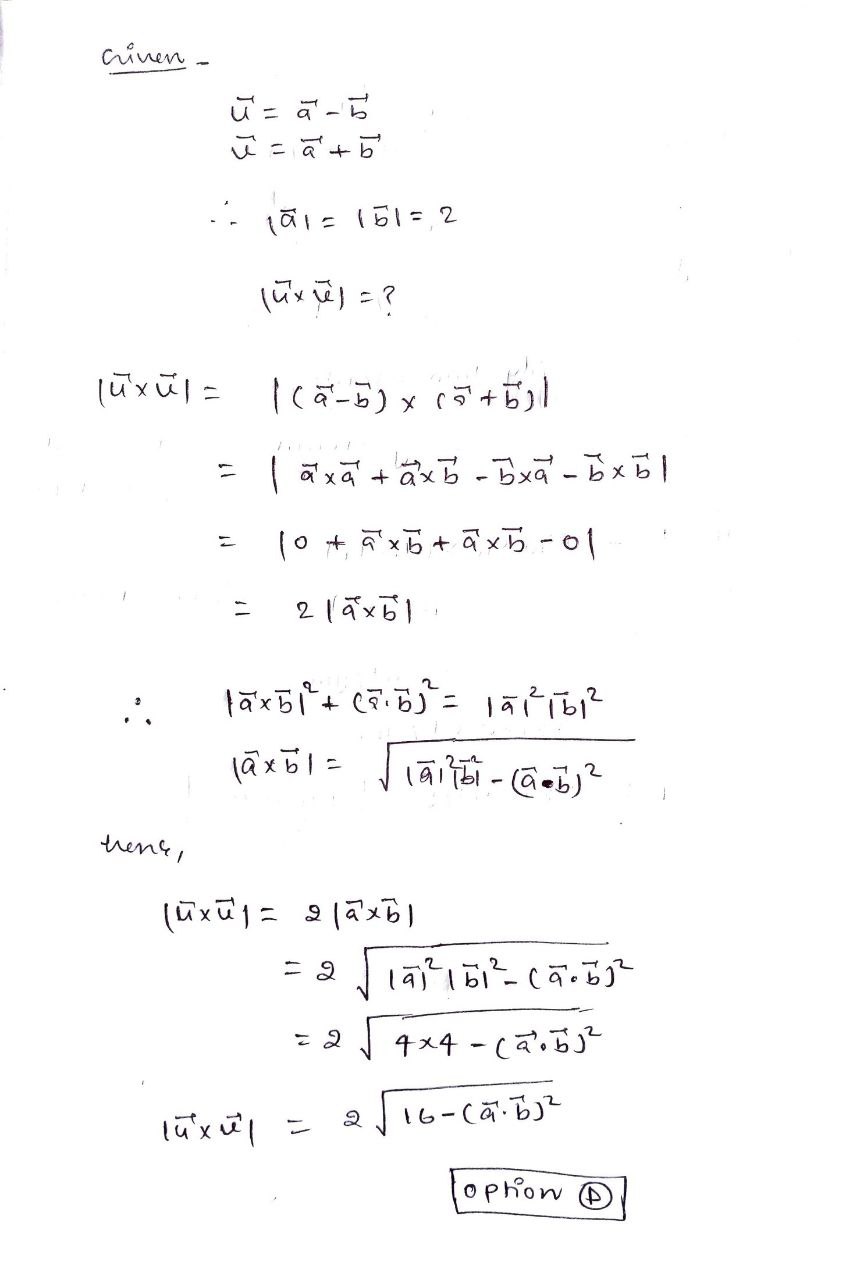 Given -
u⃗ = a⃗ - b⃗
v⃗ = a⃗ + b⃗
∴ |a⃗| = |b⃗| = 2
|u⃗ × v⃗| = ?
|u⃗ × v⃗| = |(a⃗ - b⃗) × (a⃗ + b⃗)|
= |a⃗ × a⃗ + a⃗ × b⃗ - b⃗ × a⃗ - b⃗ × b⃗|
= |0 + a⃗ × b⃗ + a⃗ × b⃗ - 0|
= 2 |a⃗ × b⃗|
∴ |a⃗ × b⃗|² + (a⃗ · b⃗)² = |a⃗|² |b⃗|²
|a⃗ × b⃗| = √(|a⃗|² |b⃗|² - (a⃗ · b⃗)²)
hence,
|u⃗ × v⃗| = 2 |a⃗ × b⃗|
= 2 √(|a⃗|² |b⃗|² - (a⃗ · b⃗)²)
= 2 √(4×4 - (a⃗ · b⃗)²)
|u⃗ × v⃗| = 2 √(16 - (a⃗ · b⃗)²)
option Ⓐ